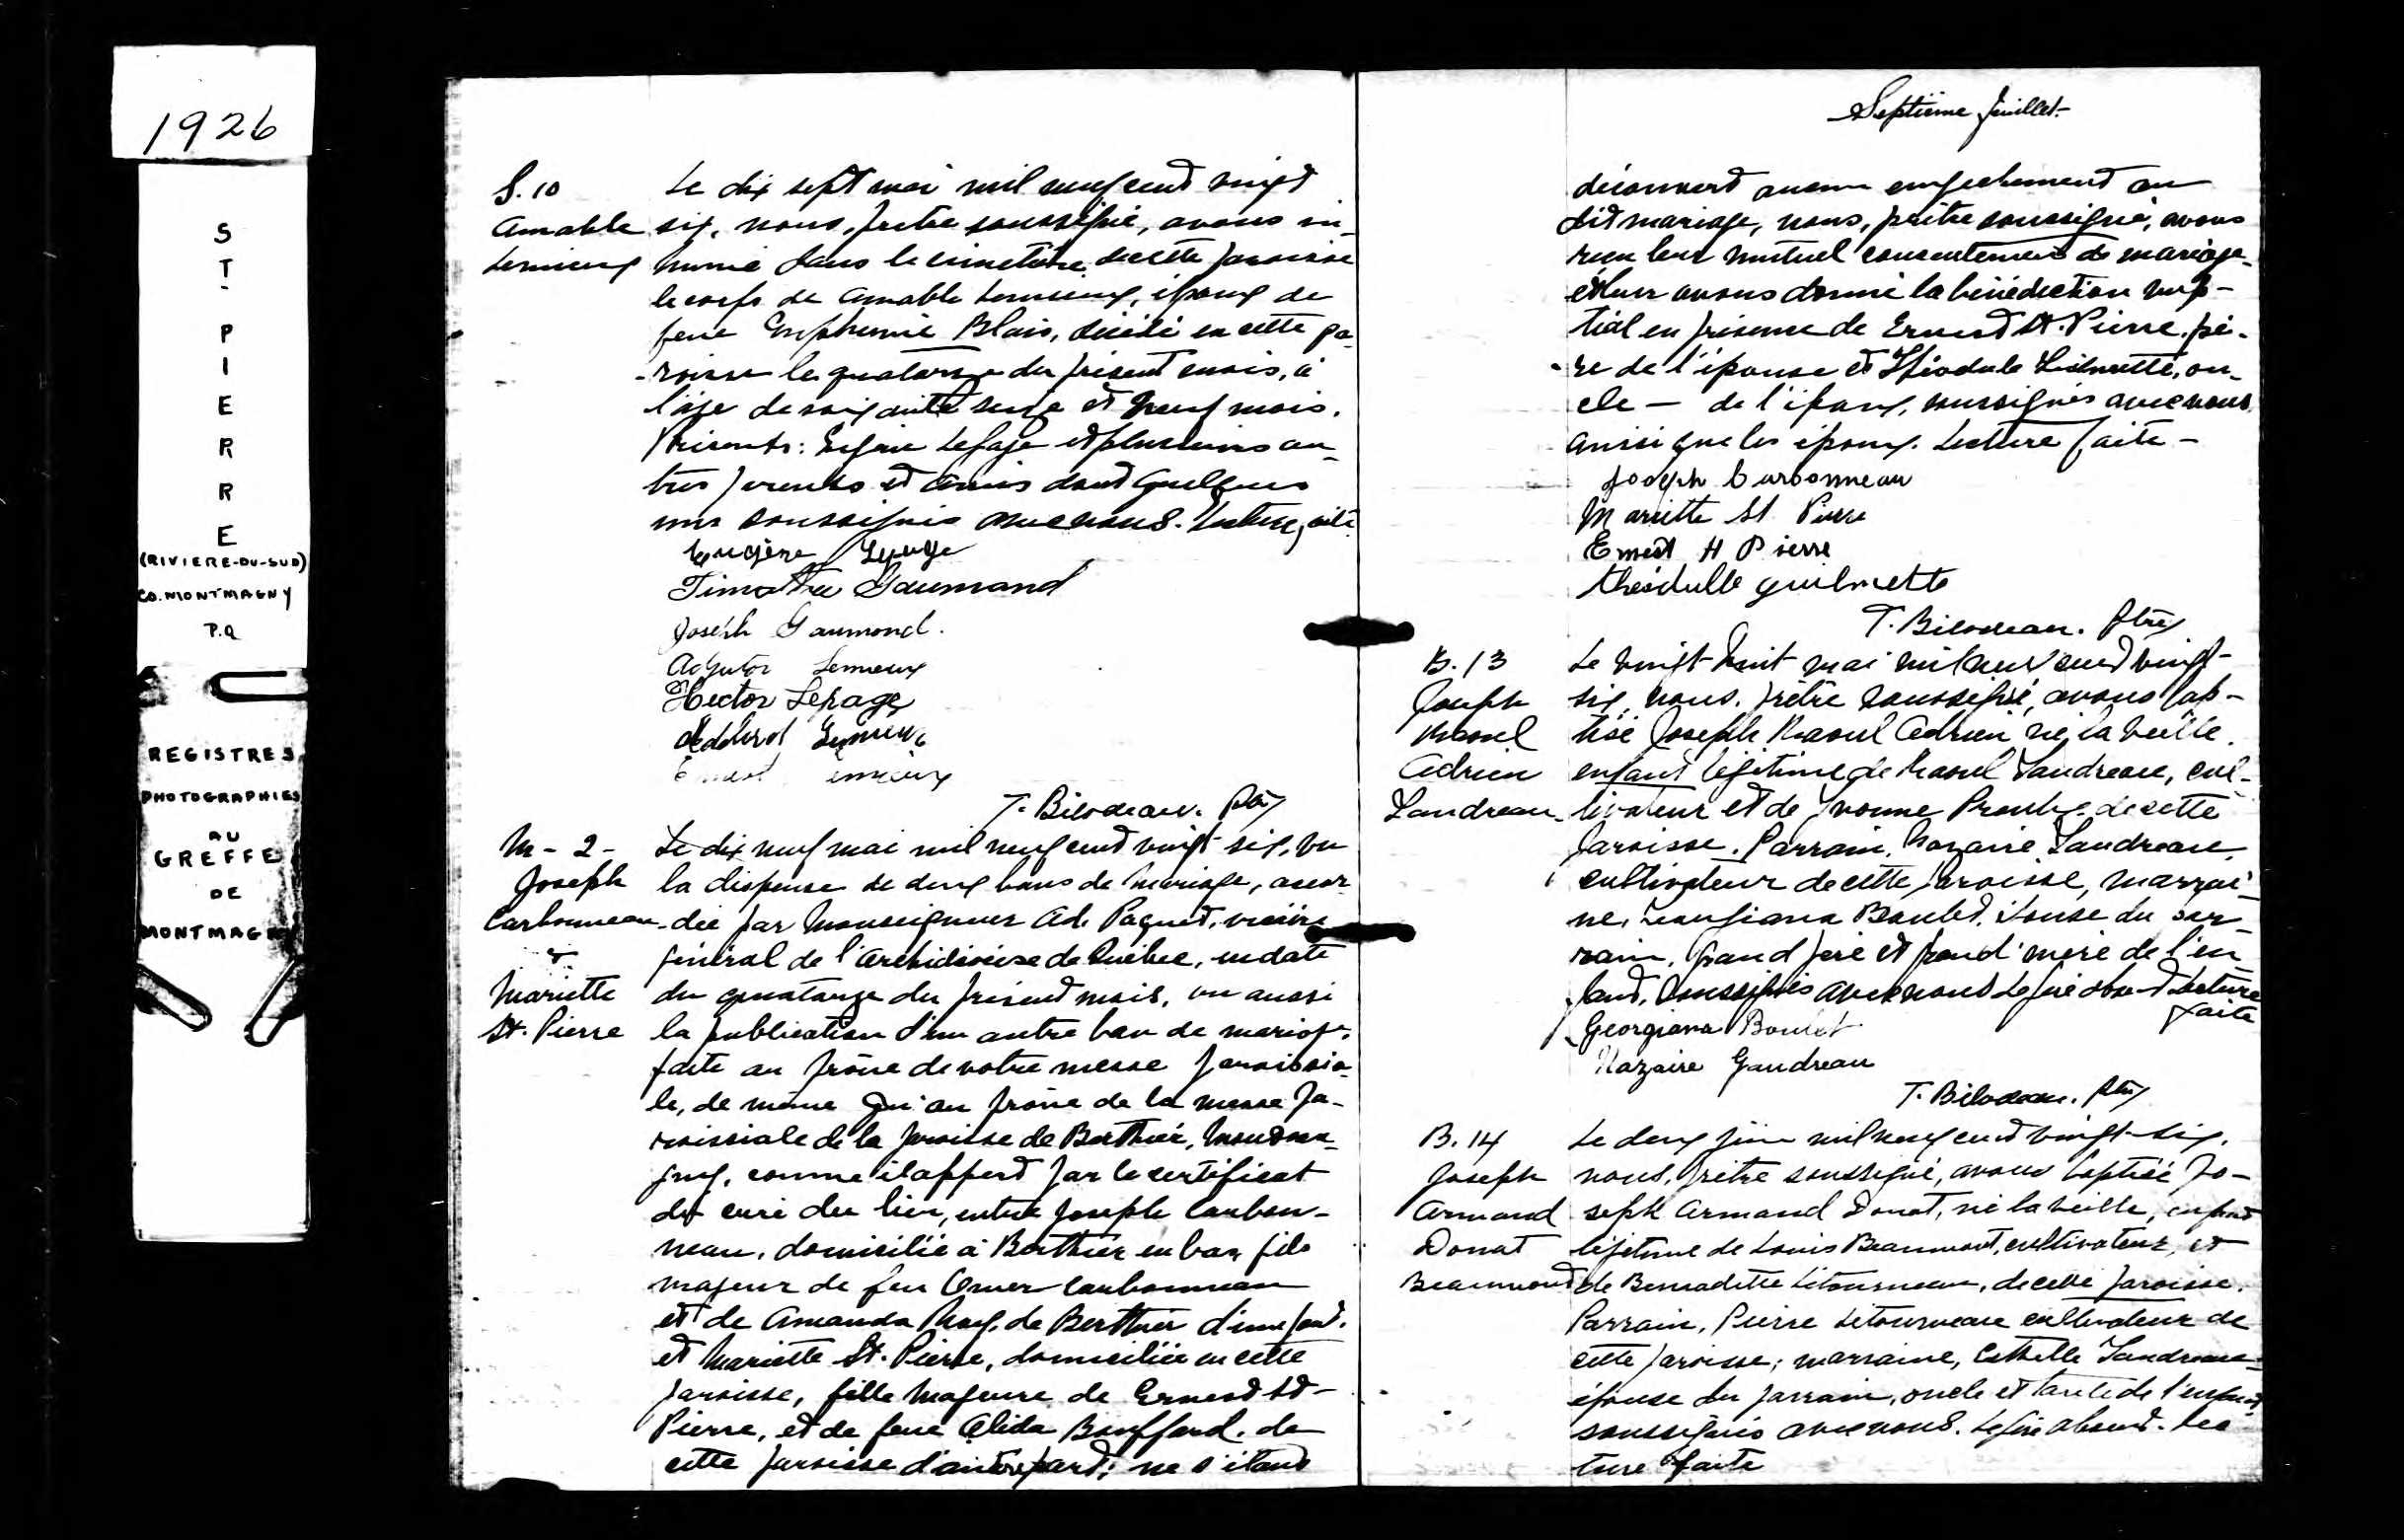 1926
ST. PIERRE
(RIVIERE-DU-SUD)
CO. MONTMAGNY
P.Q
REGISTRES
PHOTOGRAPHIES
AU
GREFFE
DE
MONTMAGNY
S. 10
Amable
Lemieux
Le dix sept mai mil neuf cent vingt
six, nous, prêtre soussigné, avons in-
humé dans le cimetière de cette paroisse
le corps de Amable Lemieux, époux de
feue Euphémie Blais, décédé en cette pa-
-roisse le quatorze du présent mois, à
l'âge de soixante seize et neuf mois.
Présents: Eugène Lepage et plusieurs au-
tres parents et amis dont quelques
uns soussignés avec nous. Lecture faite
Eugène Lepage
Timothée Gaumond
Joseph Gaumond.
Adjutor Lemieux
Hector Lepage
Lemieux
Ernest Lemieux
T. Bilodeau. ptre
M - 2 -
Joseph
Carbonneau
&
Mariette
St. Pierre
Le dix neuf mai mil neuf cent vingt six, vu
la dispense de deux bans de mariage, accor-
-dée par Monseigneur Ad. Paquet, vicaire
général de l'Archidiocèse de Québec, en date
du quatorze du présent mois, vu aussi
la publication d'un autre ban de mariage
faite au prône de notre messe paroissia-
le, de même qu'au prône de la messe pa-
roissiale de la paroisse de Berthier, Montma-
gny, comme il appert par le certificat
du curé du lieu, entre Joseph Carbon-
neau, domicilié à Berthier en bas, fils
majeur de feu Omer Carbonneau
et de Amanda Roy, de Berthier d'une part,
et Mariette St. Pierre, domiciliée en cette
paroisse, fille majeure de Ernest St-
Pierre, et de feue Alida Bouffard, de
cette paroisse d'autre part; ne s'étant
Septième feuillet
découvert aucun empêchement au
dit mariage, nous, prêtre soussigné, avons
reçu leur mutuel consentement de mariage
et leur avons donné la bénédiction nup-
tial en présence de Ernest St. Pierre, pè-
-re de l'épouse et Théodule Guilmette, on-
cle - de l'époux, soussignés avec nous
ainsi que les époux. Lecture faite -
Joseph Carbonneau
Mariette St Pierre
Ernest St Pierre
Théodulle Guilmette
T. Bilodeau. ptre
B. 13
Joseph
Raoul
Adrien
Gaudreau
Le vingt-huit mai mil neuf cent vingt-
six, nous, prêtre soussigné, avons bap-
tisé Joseph Raoul Adrien né la veille,
enfant légitime de Raoul Gaudreau, cul-
tivateur et de Yvonne Proulx de cette
paroisse. Parrain, Nazaire Gaudreau,
cultivateur de cette paroisse, marrai-
ne, Georgiana Boulet, épouse du par-
rain, grand père et grand' mère de l'en-
fant, soussignés avec nous Le père absent Lecture
faite
Georgiana Boulet
Nazaire Gaudreau
T. Bilodeau. ptre
B. 14
Joseph
Armand
Donat
Beaumont
Le deux juin mil neuf cent vingt-six,
nous, prêtre soussigné, avons baptisé Jo-
seph Armand Donat, né la veille, enfant
légitime de Louis Beaumont, cultivateur, et
de Bernadette Létourneau, de cette paroisse.
Parrain, Pierre Létourneau cultivateur de
cette paroisse; marraine, Gaudreau
épouse du parrain, oncle et tante de l'enfant
soussignés avec nous. Le père absent. Lec-
ture faite